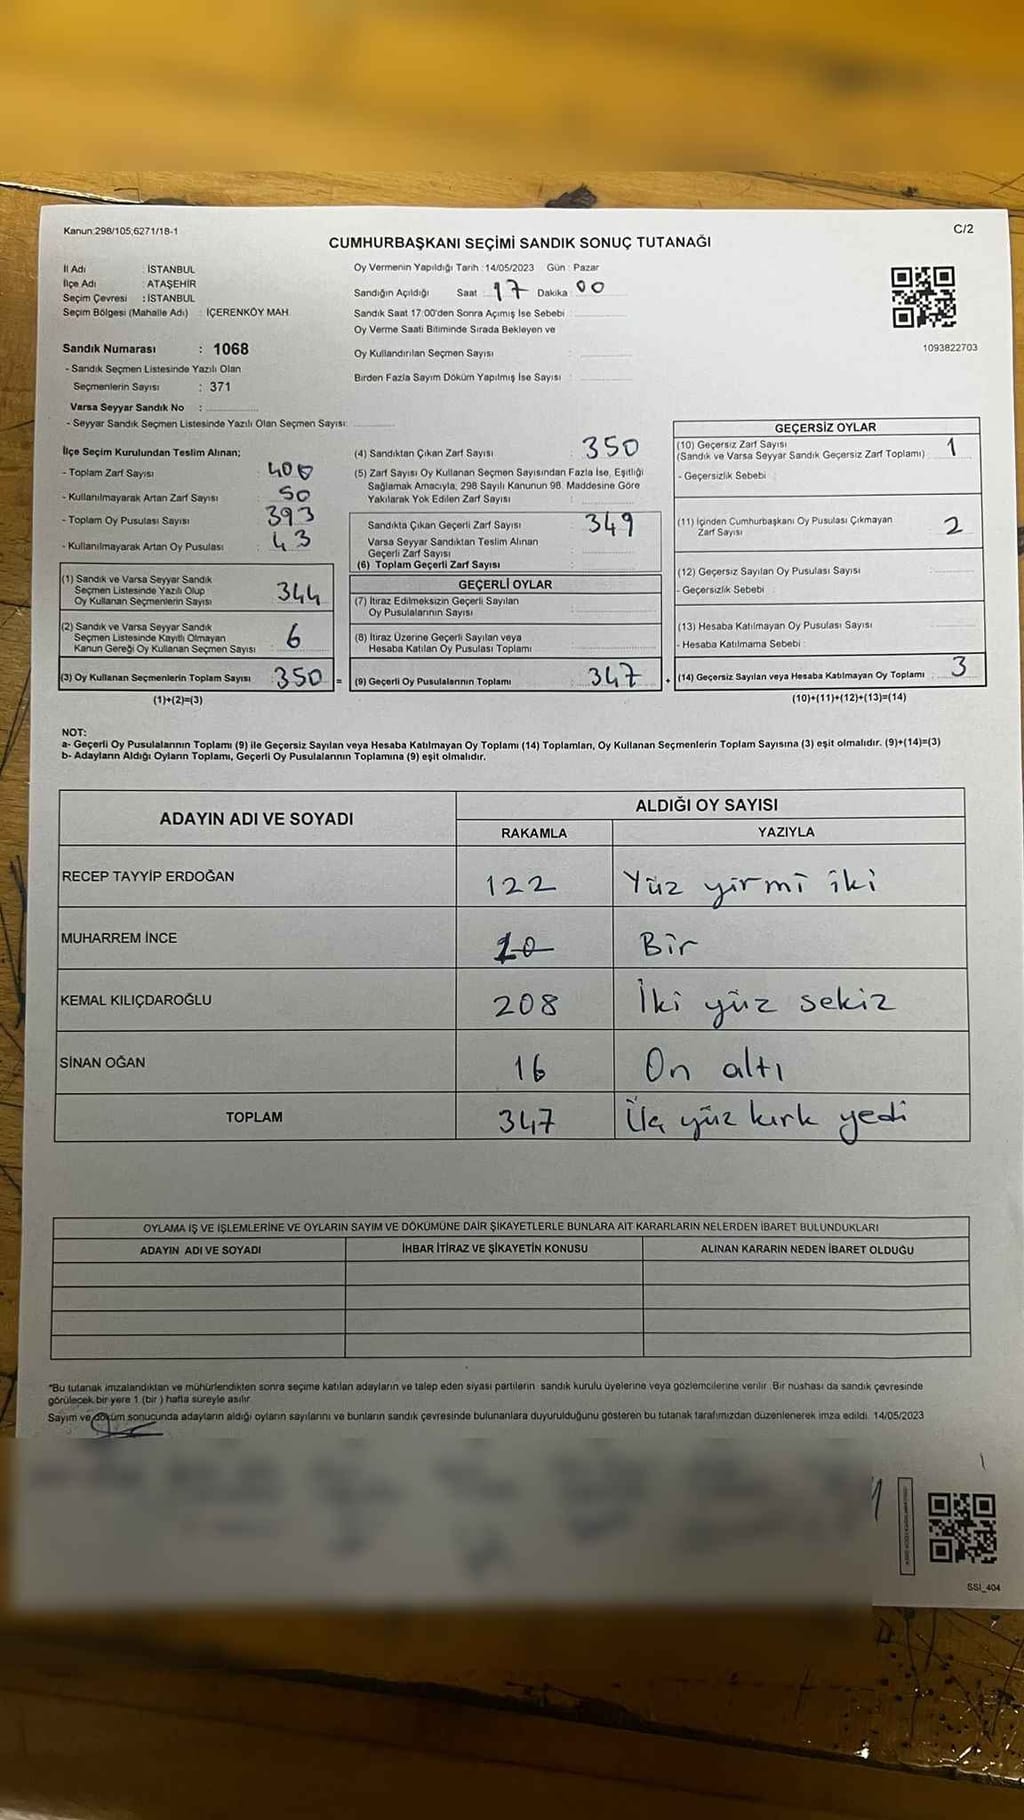 Kanun:298/105;6271/18-1
C/2
CUMHURBAŞKANI SEÇİMİ SANDIK SONUÇ TUTANAĞI
İl Adı : İSTANBUL
İlçe Adı : ATAŞEHİR
Seçim Çevresi : İSTANBUL
Seçim Bölgesi (Mahalle Adı) : İÇERENKÖY MAH.
Sandık Numarası : 1068
- Sandık Seçmen Listesinde Yazılı Olan
Seçmenlerin Sayısı : 371
Varsa Seyyar Sandık No :
- Seyyar Sandık Seçmen Listesinde Yazılı Olan Seçmen Sayısı:
Oy Vermenin Yapıldığı Tarih : 14/05/2023 Gün : Pazar
Sandığın Açıldığı Saat : 17 Dakika : 00
Sandık Saat 17:00'den Sonra Açımış İse Sebebi :
Oy Verme Saati Bitiminde Sırada Bekleyen ve
Oy Kullandırılan Seçmen Sayısı :
Birden Fazla Sayım Döküm Yapılmış İse Sayısı :
1093822703
İlçe Seçim Kurulundan Teslim Alınan;
- Toplam Zarf Sayısı : 400
- Kullanılmayarak Artan Zarf Sayısı : 50
- Toplam Oy Pusulası Sayısı : 393
- Kullanılmayarak Artan Oy Pusulası : 43
(1) Sandık ve Varsa Seyyar Sandık
Seçmen Listesinde Yazılı Olup
Oy Kullanan Seçmenlerin Sayısı : 344
(2) Sandık ve Varsa Seyyar Sandık
Seçmen Listesinde Kayıtlı Olmayan
Kanun Gereği Oy Kullanan Seçmen Sayısı : 6
(3) Oy Kullanan Seçmenlerin Toplam Sayısı : 350 =
(1)+(2)=(3)
(4) Sandıktan Çıkan Zarf Sayısı : 350
(5) Zarf Sayısı Oy Kullanan Seçmen Sayısından Fazla İse, Eşitliği
Sağlamak Amacıyla, 298 Sayılı Kanunun 98. Maddesine Göre
Yakılarak Yok Edilen Zarf Sayısı :
Sandıkta Çıkan Geçerli Zarf Sayısı : 349
Varsa Seyyar Sandıktan Teslim Alınan
Geçerli Zarf Sayısı :
(6) Toplam Geçerli Zarf Sayısı :
GEÇERLİ OYLAR
(7) İtiraz Edilmeksizin Geçerli Sayılan
Oy Pusulalarının Sayısı :
(8) İtiraz Üzerine Geçerli Sayılan veya
Hesaba Katılan Oy Pusulası Toplamı :
(9) Geçerli Oy Pusulalarının Toplamı : 347 +
GEÇERSİZ OYLAR
(10) Geçersiz Zarf Sayısı
(Sandık ve Varsa Seyyar Sandık Geçersiz Zarf Toplamı) : 1
- Geçersizlik Sebebi :
(11) İçinden Cumhurbaşkanı Oy Pusulası Çıkmayan
Zarf Sayısı : 2
(12) Geçersiz Sayılan Oy Pusulası Sayısı :
- Geçersizlik Sebebi :
(13) Hesaba Katılmayan Oy Pusulası Sayısı :
- Hesaba Katılmama Sebebi :
(14) Geçersiz Sayılan veya Hesaba Katılmayan Oy Toplamı : 3
(10)+(11)+(12)+(13)=(14)
NOT:
a- Geçerli Oy Pusulalarının Toplamı (9) ile Geçersiz Sayılan veya Hesaba Katılmayan Oy Toplamı (14) Toplamları, Oy Kullanan Seçmenlerin Toplam Sayısına (3) eşit olmalıdır. (9)+(14)=(3)
b- Adayların Aldığı Oyların Toplamı, Geçerli Oy Pusulalarının Toplamına (9) eşit olmalıdır.
ADAYIN ADI VE SOYADI
ALDIĞI OY SAYISI
RAKAMLA YAZIYLA
RECEP TAYYİP ERDOĞAN 122 Yüz yirmi iki
MUHARREM İNCE Bir
KEMAL KILIÇDAROĞLU 208 İki yüz sekiz
SİNAN OĞAN 16 On altı
TOPLAM 347 yüz kırk yedi
OYLAMA İŞ VE İŞLEMLERİNE VE OYLARIN SAYIM VE DÖKÜMÜNE DAİR ŞİKAYETLERLE BUNLARA AİT KARARLARIN NELERDEN İBARET BULUNDUKLARI
ADAYIN ADI VE SOYADI İHBAR İTİRAZ VE ŞİKAYETİN KONUSU ALINAN KARARIN NEDEN İBARET OLDUĞU
*Bu tutanak imzalandıktan ve mühürlendikten sonra seçime katılan adayların ve talep eden siyasi partilerin sandık kurulu üyelerine veya gözlemcilerine verilir. Bir nüshası da sandık çevresinde
görülecek bir yere 1 (bir) hafta süreyle asılır.
Sayım ve döküm sonucunda adayların aldığı oyların sayılarını ve bunların sandık çevresinde bulunanlara duyurulduğunu gösteren bu tutanak tarafımızdan düzenlenerek imza edildi. 14/05/2023
SSI_404